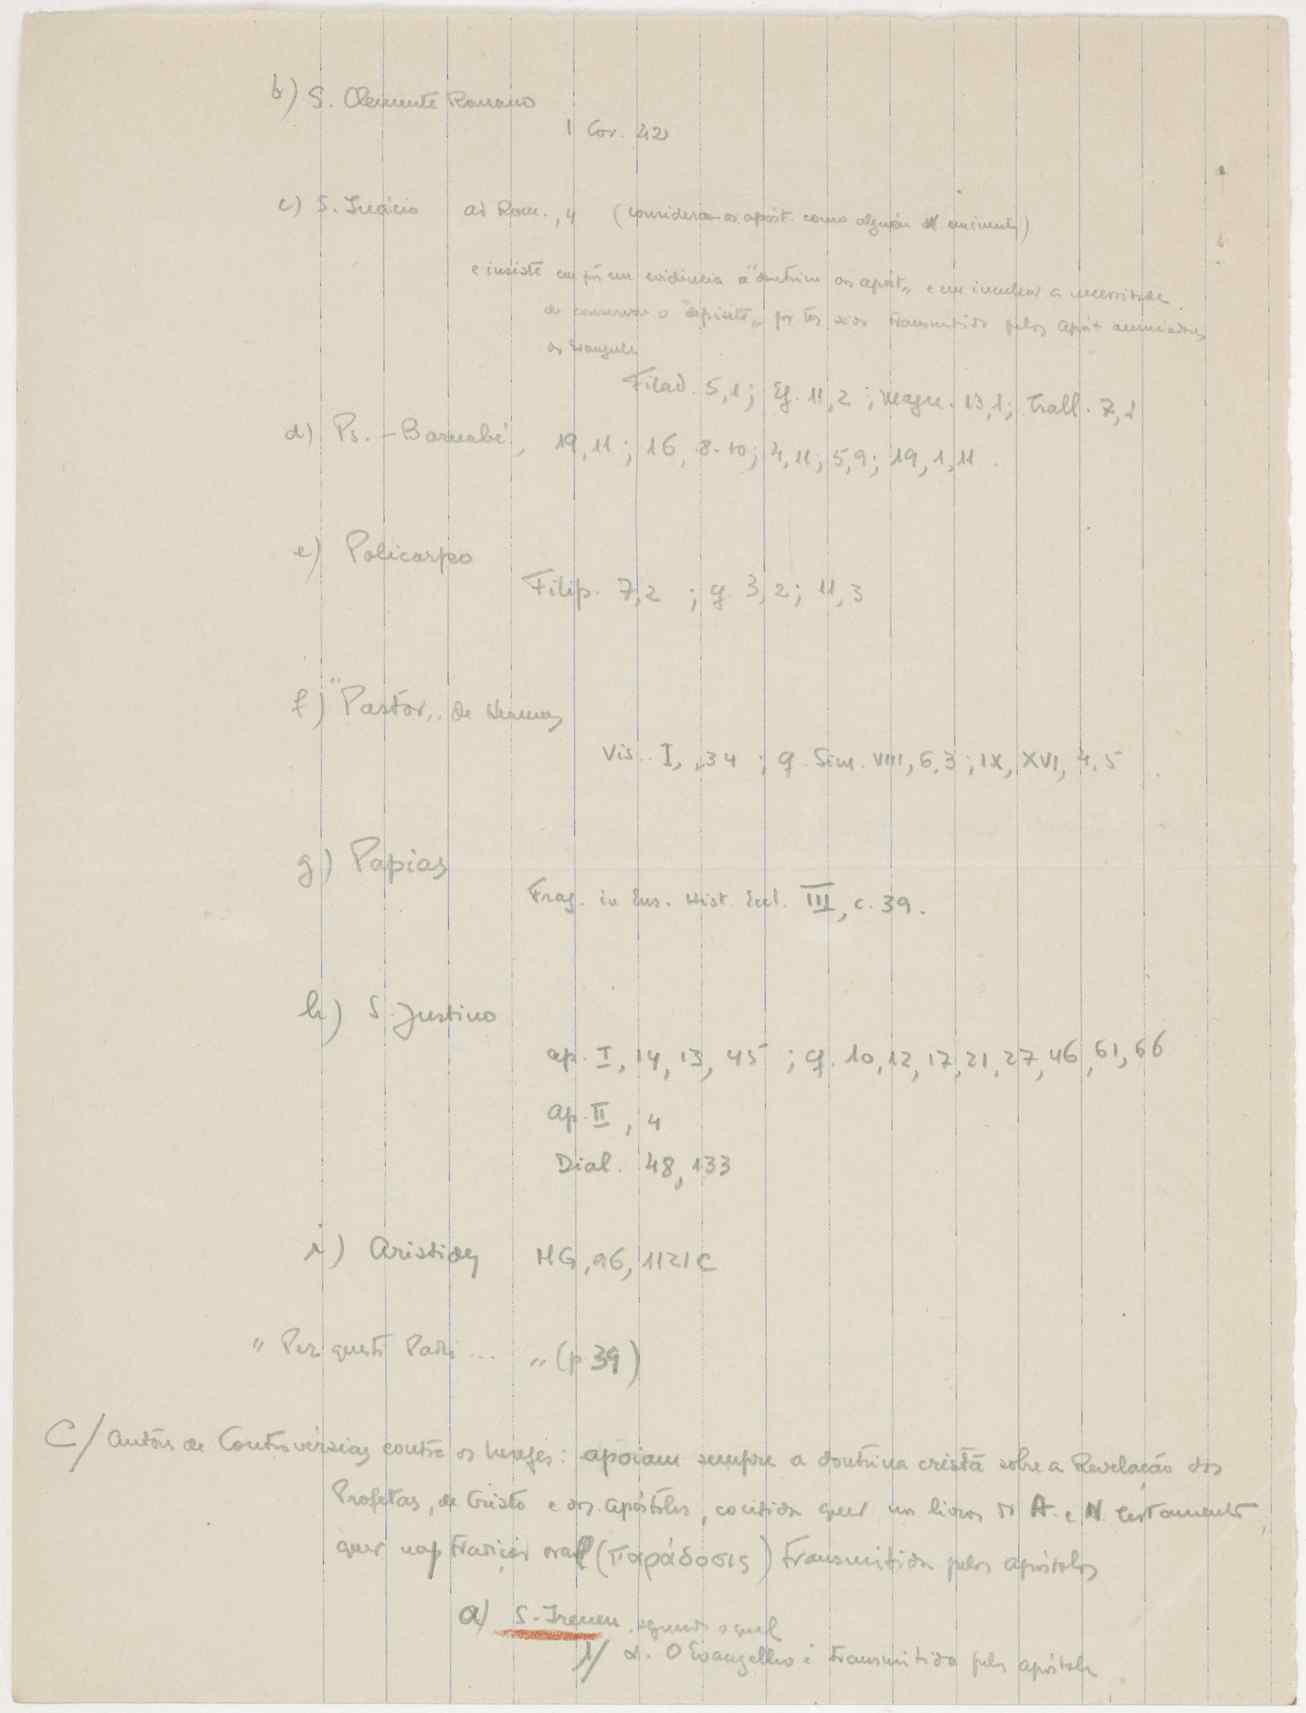 b) S. Clemente Romano
1 Cor. 42
c) S. Inácio ad Rom., 4 (consideram os apóst. como alguém eminente)
e insiste em pôr em evidência a "doutrina os apóst„ e em inculcar a necessidade
de conservar o "depósito„ por ter sido transmitido pelos apóst anunciadores
os Evangelh
Filad. 5,1; Ef. 11,2; Magn. 13,1; Trall. 7,1
d) Ps. - Barnabé, 19,11; 16, 8-10; 4,11; 5,9; 19,1,11.
e) Policarpo
Filip. 7,2 ; cf. 3,2; 11,3
f) "Pastor„ de Hermas
Vis. I, ,34 ; cf. Sim. VIII, 6.3; IX, XVI, 4.5
g) Papias
Frag. in Eus. Hist. Eccl. III, c. 39.
h) S. Justino
ap. I, 14, 13, 45 ; cf. 10, 12, 17, 21, 27, 46, 61, 66
ap. II, 4
Dial. 48, 133
i) Aristides MG, 96, 1121 C
" Per questi Padri ... „ (p 39)
C/ autores de Controvérsias contra os hereges: apoiam sempre a doutrina cristã sobre a Revelação dos
Profetas, de Cristo e dos apóstolos, contida quer nos livros do A. e N. testamento,
quer na tradição oral (παράδοσις) transmitida pelos apóstolos
a) S. Ireneu, segundo o qual
1/ α. O Evangelho é transmitido pelos apóstolos